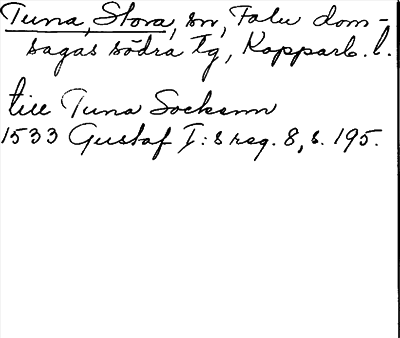 Tuna, Stora, sn, Falu dom-
sagas södra tg, Kopparb. l.
till Tuna Sockenn
1533 Gustaf I:s reg. 8, s. 195.